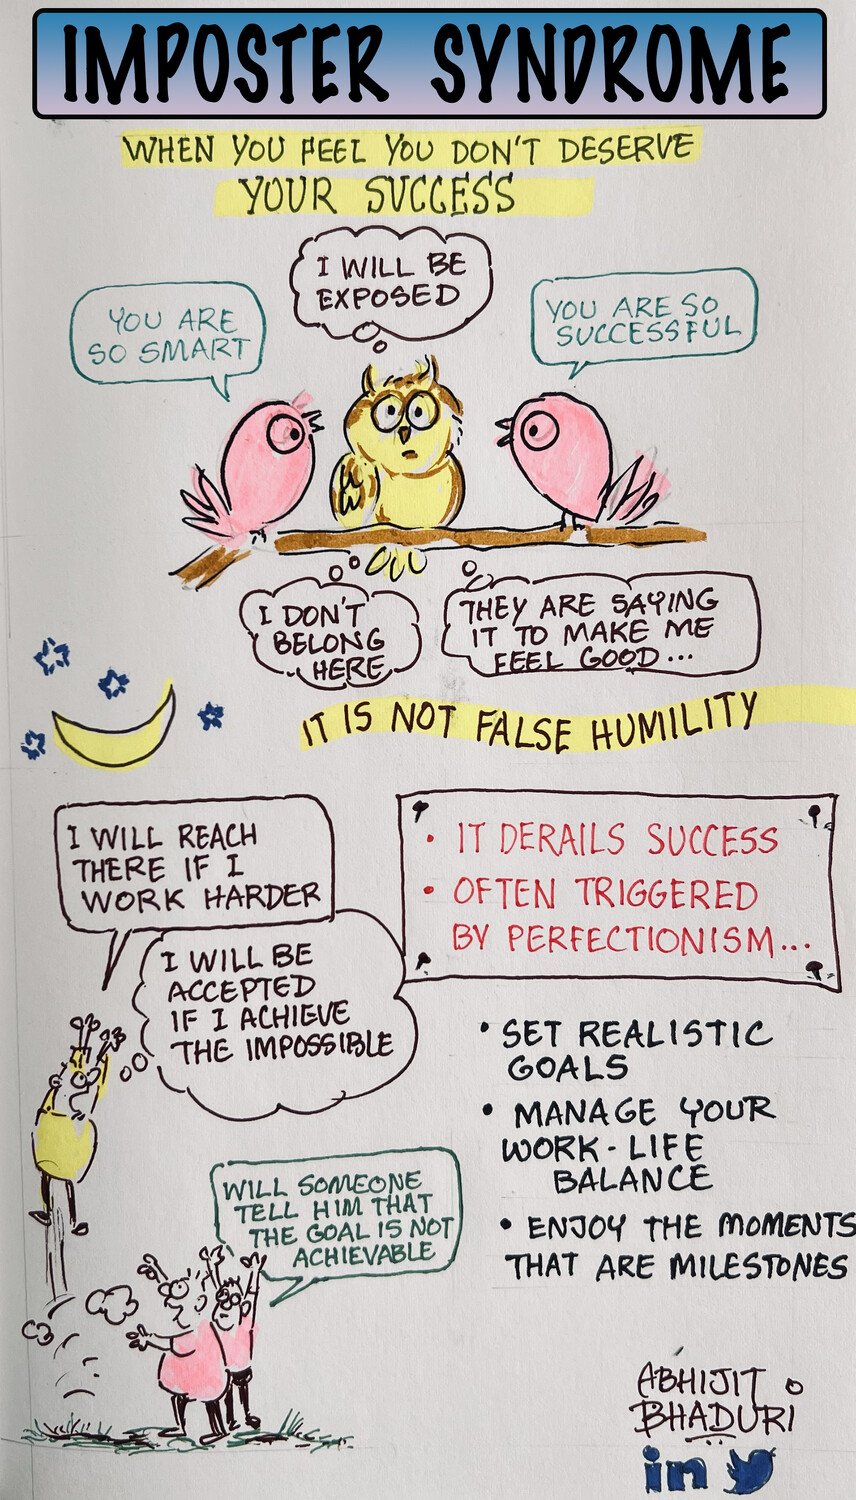 IMPOSTER SYNDROME
WHEN YOU FEEL YOU DON'T DESERVE
YOUR SUCCESS
I WILL BE
EXPOSED
YOU ARE
SO SMART
YOU ARE SO
SUCCESSFUL
I DON'T
BELONG
HERE
THEY ARE SAYING
IT TO MAKE ME
FEEL GOOD...
IT IS NOT FALSE HUMILITY
I WILL REACH
THERE IF I
WORK HARDER
• IT DERAILS SUCCESS
• OFTEN TRIGGERED
BY PERFECTIONISM...
I WILL BE
ACCEPTED
IF I ACHIEVE
THE IMPOSSIBLE
• SET REALISTIC
GOALS
• MANAGE YOUR
WORK-LIFE
BALANCE
• ENJOY THE MOMENTS
THAT ARE MILESTONES
WILL SOMEONE
TELL HIM THAT
THE GOAL IS NOT
ACHIEVABLE
ABHIJIT
BHADURI
in